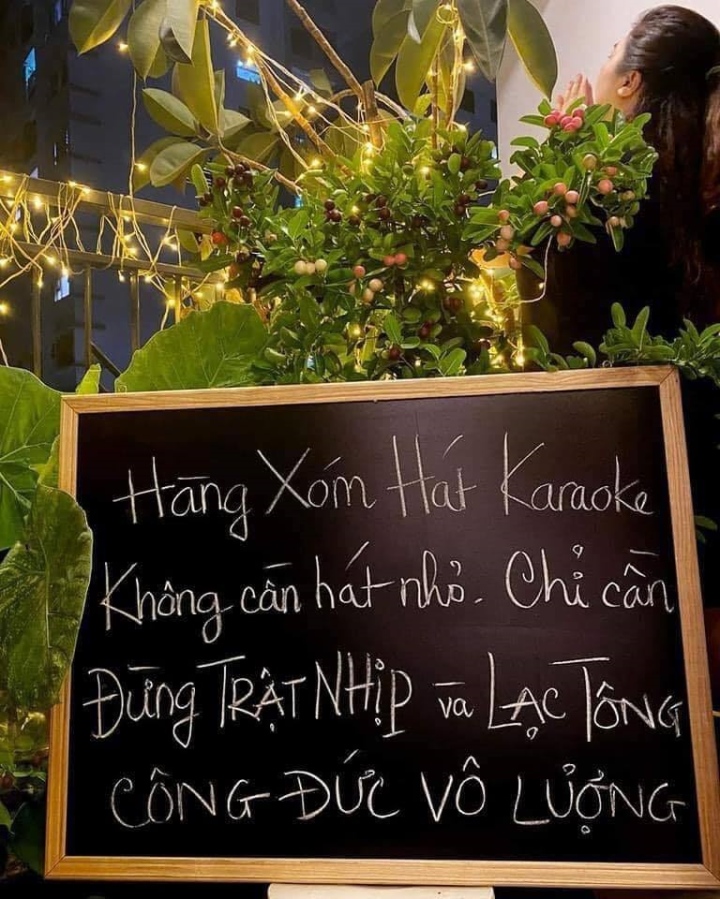 Hàng Xóm Hát Karaoke
Không cần hát nhỏ. Chỉ cần
Đừng TRẬT NHỊP và LẠC TÔNG
CÔNG ĐỨC VÔ LƯỢNG